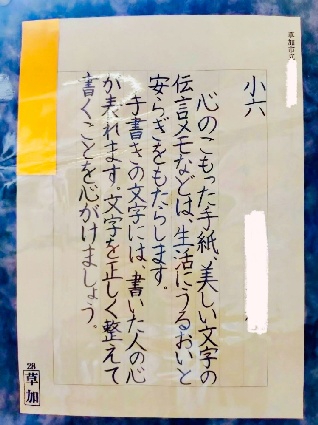 小六
心のこもった手紙、美しい文字の
伝言メモなどは、生活にうるおいと
安らぎをもたらします。
手書きの文字には、書いた人の心
が表れます。文字を正しく整えて
書くことを心がけましょう。
28
草加